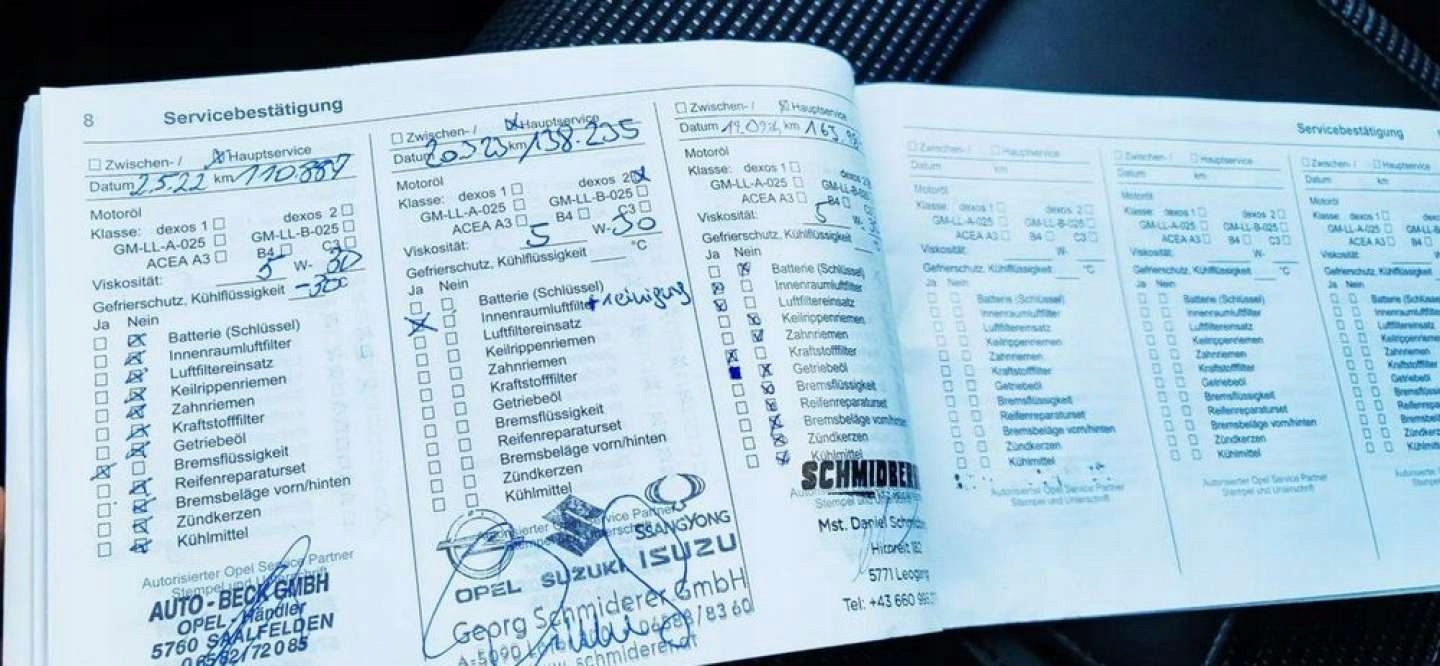 8 Servicebestätigung
Zwischen- / Hauptservice
Datum 2.5.22 km 110.887
Motoröl
Klasse: dexos 1 dexos 2
GM-LL-A-025 GM-LL-B-025
ACEA A3 B4 C3
Viskosität: 5 W- 30
Gefrierschutz, Kühlflüssigkeit -30
Ja Nein
Batterie (Schlüssel)
Innenraumluftfilter
Luftfiltereinsatz
Keilrippenriemen
Zahnriemen
Kraftstofffilter
Getriebeöl
Bremsflüssigkeit
Reifenreparaturset
Bremsbeläge vorn/hinten
Zündkerzen
Kühlmittel
Autorisierter Opel Service Partner
Stempel und Unterschrift
AUTO - BECK GMBH
OPEL - Händler
5760 SAALFELDEN
06582/72085
Zwischen- / Hauptservice
Datum 20523 km 138.235
Motoröl
Klasse: dexos 1 dexos 2
GM-LL-A-025 GM-LL-B-025
ACEA A3 B4 C3
Viskosität: 5 W- 30
Gefrierschutz, Kühlflüssigkeit °C
Ja Nein
Batterie (Schlüssel)
Innenraumluftfilter + reinigung
Luftfiltereinsatz
Keilrippenriemen
Zahnriemen
Kraftstofffilter
Getriebeöl
Bremsflüssigkeit
Reifenreparaturset
Bremsbeläge vorn/hinten
Zündkerzen
Kühlmittel
Autorisierter Opel Service Partner
SSANGYONG
OPEL SUZUKI ISUZU
Georg Schmiderer GmbH
A-5090 06588/83 60
schmiderer.at
Zwischen- / Hauptservice
Datum km 163.
Motoröl
Klasse: dexos 1 dexos 2
GM-LL-A-025 GM-LL-B
ACEA A3 B4
Viskosität: 5 W-
Gefrierschutz, Kühlflüssigkeit
Ja Nein
Batterie (Schlüssel)
Innenraumluftfilter
Luftfiltereinsatz
Keilrippenriemen
Zahnriemen
Kraftstofffilter
Getriebeöl
Bremsflüssigkeit
Reifenreparaturset
Bremsbeläge vorn/hinten
Zündkerzen
Kühlmittel
SCHMIDBER
Mst. Daniel
5771 Leogang
Tel: +43 660
Servicebestätigung
Zwischen- / Hauptservice
Datum km
Motoröl
Klasse: dexos 1 dexos 2
GM-LL-A-025 GM-LL-B-025
ACEA A3 B4 C3
Viskosität: W-
Gefrierschutz, Kühlflüssigkeit °C
Ja Nein
Batterie (Schlüssel)
Innenraumluftfilter
Luftfiltereinsatz
Keilrippenriemen
Zahnriemen
Kraftstofffilter
Getriebeöl
Bremsflüssigkeit
Reifenreparaturset
Bremsbeläge vorn/hinten
Zündkerzen
Kühlmittel
Autorisierter Opel Service Partner
Stempel und Unterschrift
Zwischen- / Hauptservice
Datum km
Motoröl
Klasse: dexos 1 dexos 2
GM-LL-A-025 GM-LL-B-025
ACEA A3 B4 C3
Viskosität: W-
Gefrierschutz, Kühlflüssigkeit °C
Ja Nein
Batterie (Schlüssel)
Innenraumluftfilter
Luftfiltereinsatz
Keilrippenriemen
Zahnriemen
Kraftstofffilter
Getriebeöl
Bremsflüssigkeit
Reifenreparaturset
Bremsbeläge vorn/hinten
Zündkerzen
Kühlmittel
Autorisierter Opel Service Partner
Stempel und Unterschrift
Zwischen- / Hauptservice
Datum km
Motoröl
Klasse: dexos 1
GM-LL-A-025
ACEA A3
Viskosität:
Gefrierschutz, Kühlflüssigkeit
Ja Nein
Batterie (Schlüssel)
Innenraumluftfilter
Luftfiltereinsatz
Keilrippenriemen
Zahnriemen
Kraftstofffilter
Getriebeöl
Bremsflüssigkeit
Reifenrepara
Bremsbeläge
Zündkerzen
Kühlmittel
Autorisierter Opel
Stempel und